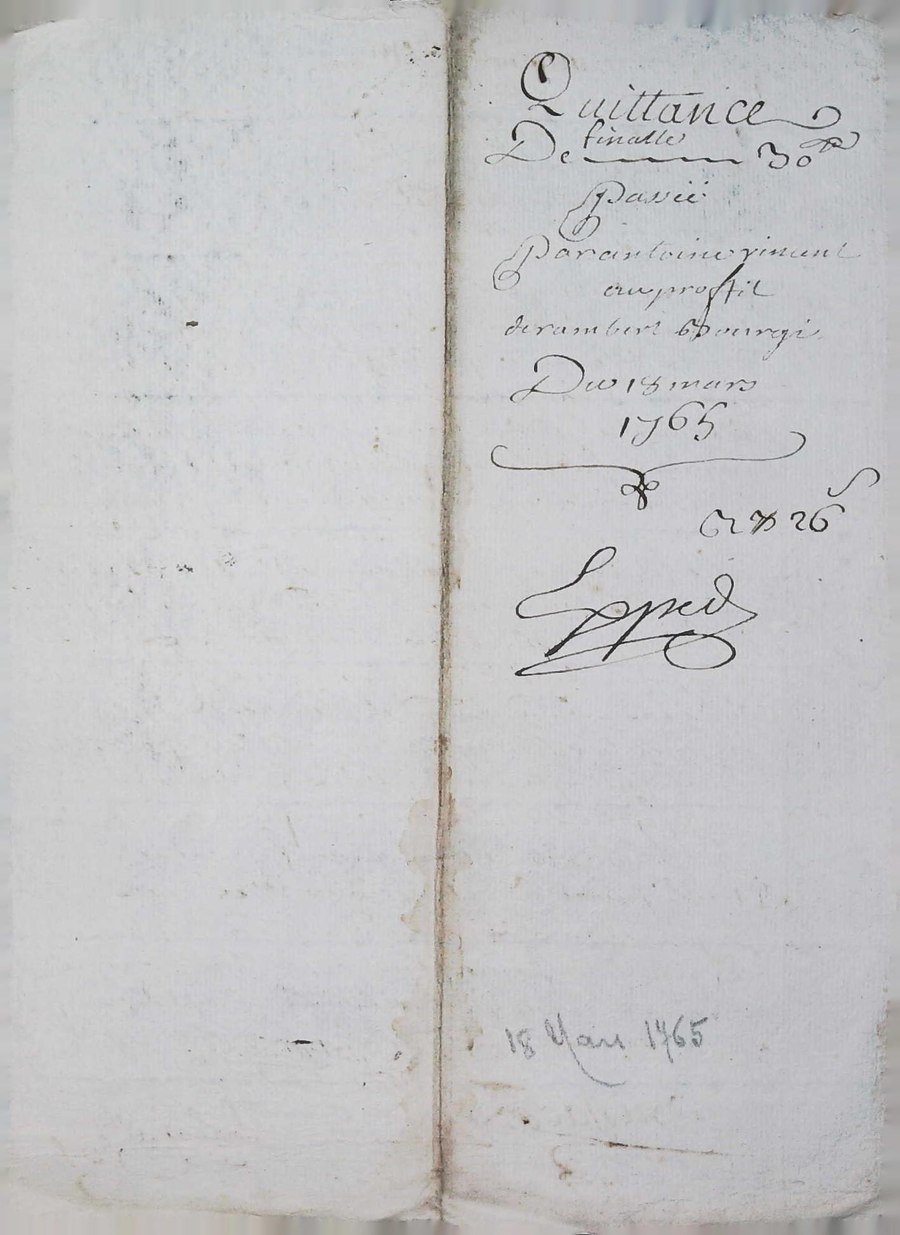 Quittance
finalle
De 30 ₶
Passéé
Par antoine vincent
au proffit
de rambert Bourgi
Du 18 mars
1765
Exped
18 Mars 1765